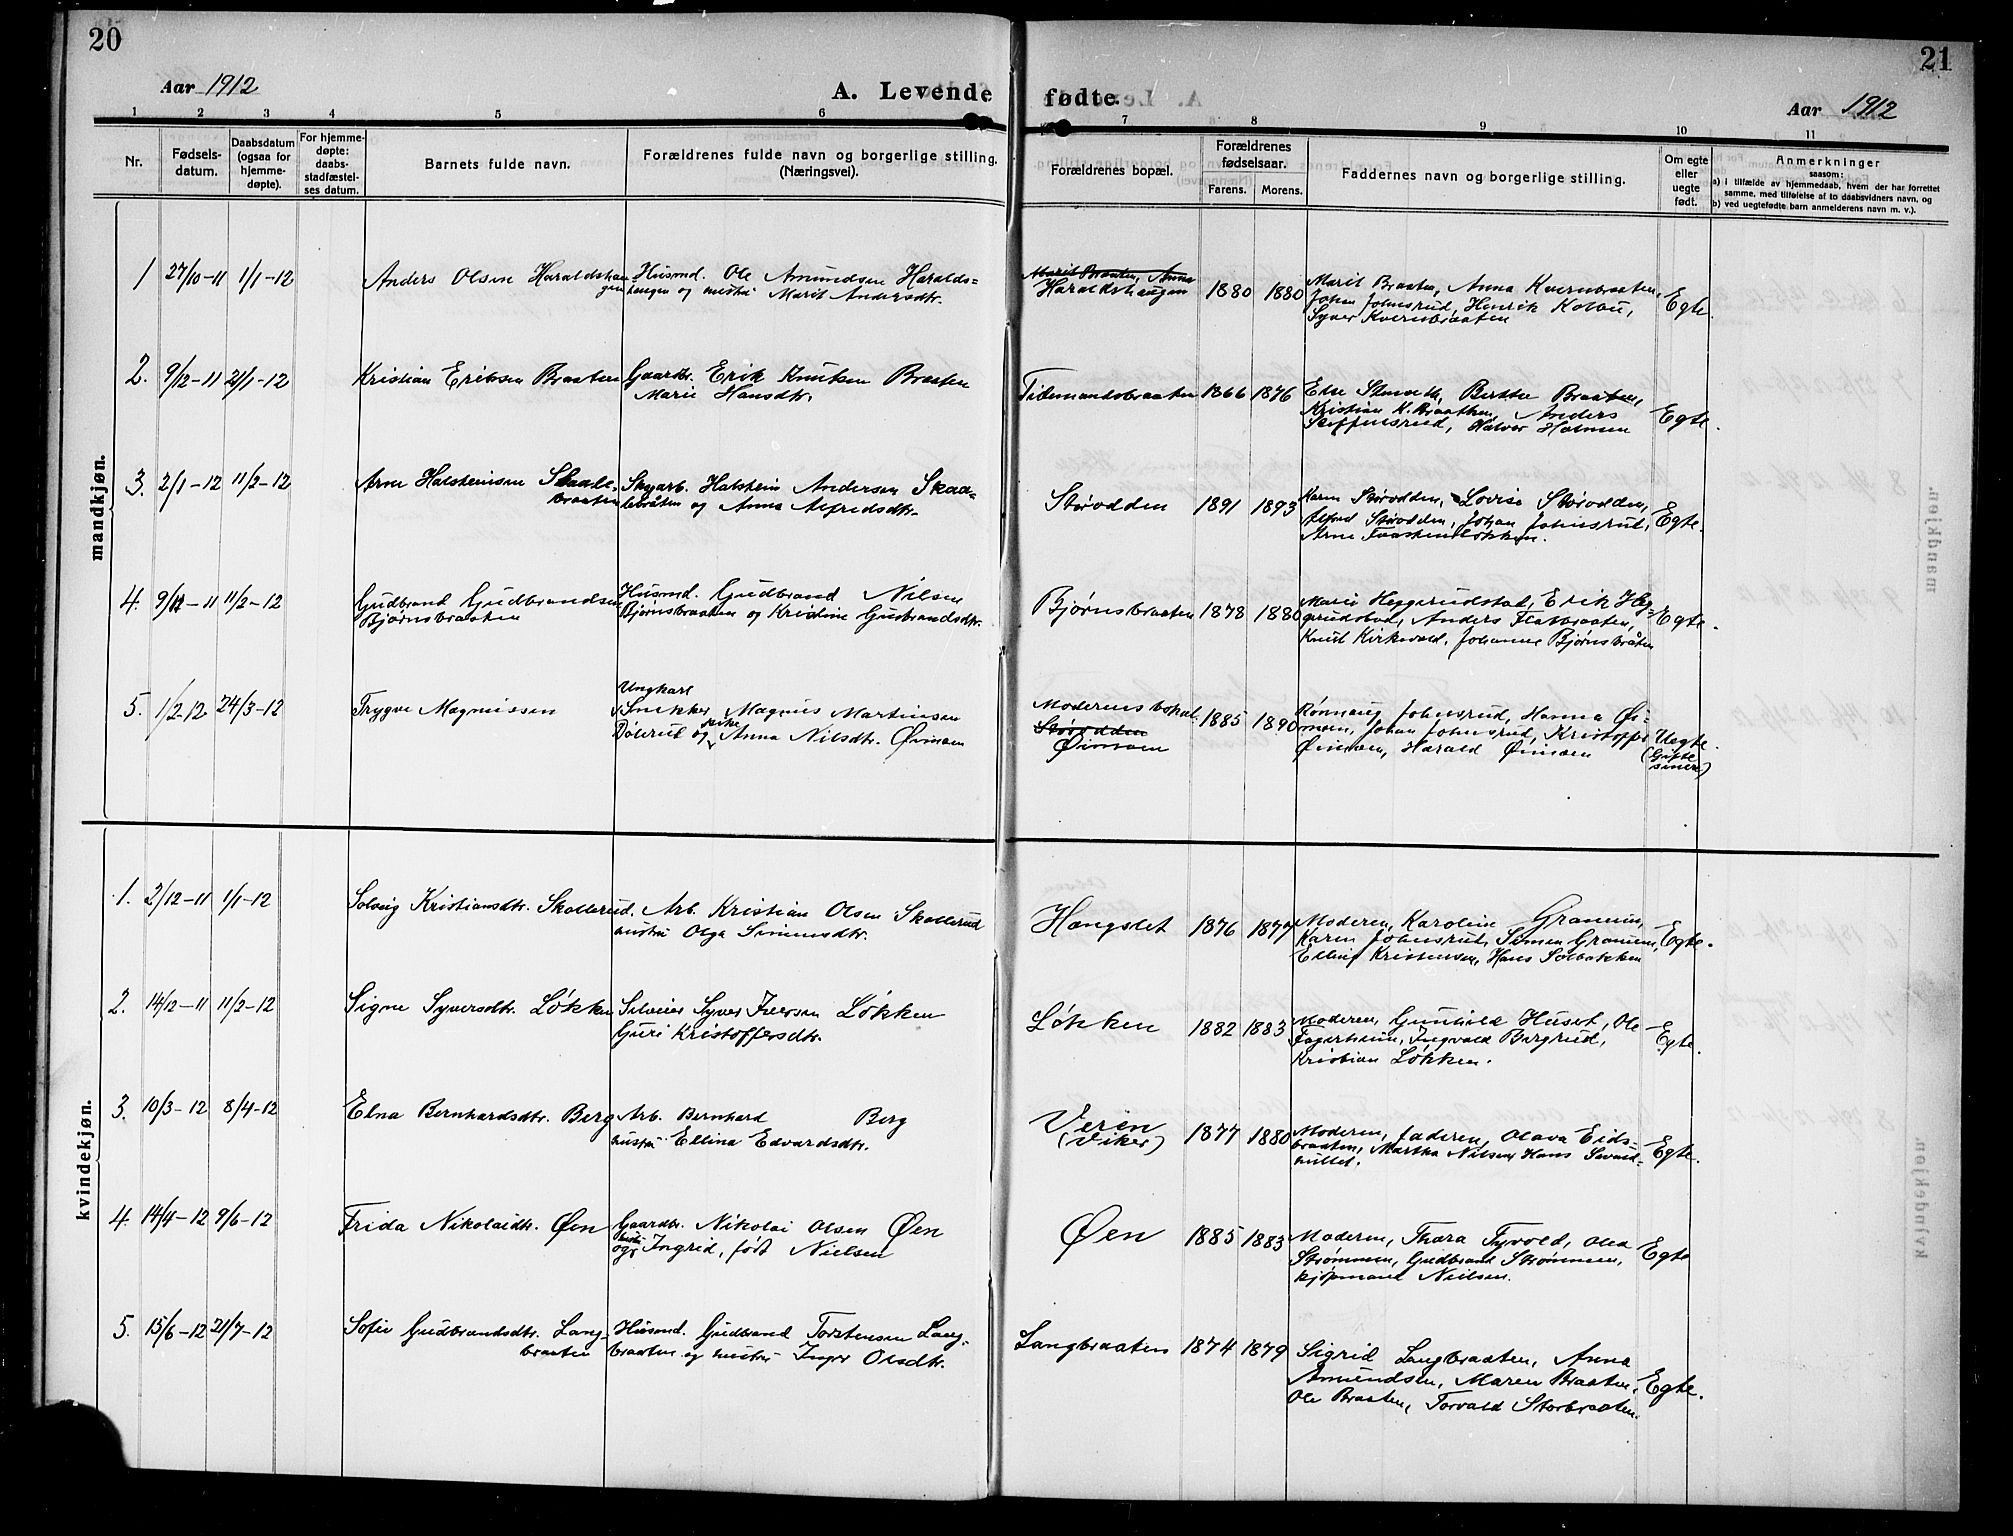 20
21
Aar 1912
A. Levende fødte.
Aar 1912
1 2 3 4 5 6 7 8 9 10 11
Nr.
Fødsels-
datum.
Daabsdatum
(ogsaa for
hjemme-
døpte).
For hjemme-
døpte:
daabs-
stadfæstel-
ses datum.
Barnets fulde navn.
Forældrenes fulde navn og borgerlige stilling.
(Næringsvei).
Forældrenes bopæl.
Forældrenes
fødselsaar.
Farens. Morens.
Faddernes navn og borgerlige stilling.
Om egte
eller
uegte
født.
Anmerkninger
saasom:
a) i tilfælde av hjemmedaab, hvem der har forrettet
samme, med tilføielse af to daabsvidners navn, og
b) ved uegtefødte barn anmelderens navn m. v.).
mandkjøn.
1 27/10-11 1/1-12
Anders Olsen Haraldshau
gen
Husmd. Ole Amundsen Haralds-
haugen og hustru Marit Andersdtr.
Marit Braaten, Anna
Haraldshaugen
1880 1880
Marit Braaten, Anna Kvernbraaten,
Johan Johnsrud, Henrik Kolbu,
Syver Kvernbraaten
Egte.
2. 9/12-11 21/1-12
Kristian Eriksen Braaten
Gaardbr. Erik Knutsen Braaten
Marie Hansdtr.
Tidemandsbraaten
1866 1876
Else Stenseth, Berthe Braaten,
Kristian K. Braathen, Anders
Halvor Holmen
Egte.
3. 2/1-12 11/2-12
Arne Halsteinsen Skaale-
braaten
Skogarb. Halstein Andersen Skaa-
lebråten og Anna Alfredsdtr.
Størodden
1891 1893
Karen Størodden, Lovise Størodden,
Alfred Størodden, Johan Johnsrud,
Arne Traasteinløkken.
Egte.
4. 9/12-11 11/2-12
Gudbrand Gudbrandsen
Bjørnsbraaten
Husmd. Gudbrand Nilsen
Bjørnsbraaten og Kristine Gudbrandsdtr.
Bjørnsbraaten
1878 1880
Marie Heggerudstad, Erik Heg-
gerudstad, Anders Flatbraaten,
Knut Kirkevold, Johanne Bjørnsbråten
Egte.
5. 1/2-12 24/3-12
Trygve Magnussen
Ungkarl
Snekker Magnus Martinsen
Dølerud og pike Anna Nilsdtr. Øimoen
Moderens bopæl
Størodden
Øimoen
1885 1890
Rønnaug Johnsrud, Hanna Øi-
moen, Johan Johnsrud, Kristoffer
Øimoen, Harald Øimoen
Uegte.
(Gifte
senere)
kvindekjøn.
1. 2/12-11 1/1-12
Solveig Kristiansdtr. Skollerud.
Arb. Kristian Olsen Skollerud
hustru Olga Simensdtr.
Hængslet
1876 1877
Moderen, Karoline Granum,
Karen Johnsrud, Simen Granum,
Elling Kristensen, Hans Solbakken
Egte.
2. 14/12-11 11/2-12
Signe Syversdtr. Løkken
Selveier Syver Iversen Løkken
Guri Kristoffersdtr.
Løkken
1882 1883
Moderen, Gunhild Huset, Ole
Fagerheim, Ingvald Bergrud,
Kristian Løkken.
Egte.
3. 10/3-12 8/4-12
Elna Bernhardsdtr. Berg
Arb. Bernhard Berg
hustru Ellina Edvardsdtr.
Veien
(Viker)
1877 1880
Moderen, faderen, Olava Eids-
braaten, Martha Nilsen, Hans
Egte.
4. 14/4-12 9/6-12
Frida Nikolaidtr. Øen
Gaardbr. Nikolai Olsen Øen
og hustru Ingrid, født Nielsen
Øen
1885 1883
Moderen, Thora Tyvold, Olea
Strømmen, Gudbrand Strømmen,
kjøpmand Nielsen.
Egte
5. 15/6-12 21/7-12
Sofie Gudbrandsdtr. Lang-
braaten
Husmd. Gudbrand Torstensen Lang-
braaten og hustru Inger Olsdtr.
Langbraaten
1874 1879
Sigrid Langbraaten, Anna
Amundsen, Maren Braaten,
Ole Braaten, Torvald Storbraaten.
Egte.